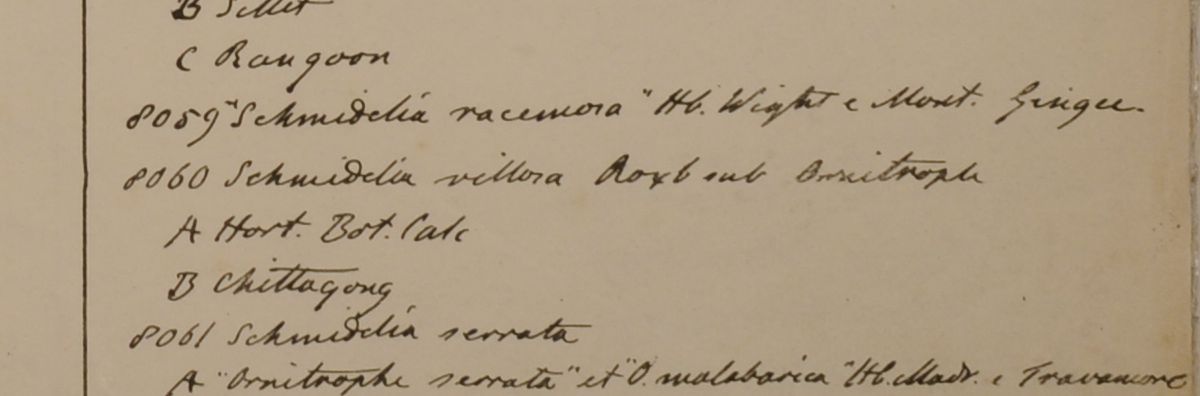 B Sillet
C Rangoon
8059 "Schmidelia racemosa" Hb. Wight e Mont. Gingee.
8060 Schmidelia villosa Roxb sub Ornitrophe
A Hort. Bot. Calc
B Chittagong
8061 Schmidelia serrata
A "Ornitrophe serrata" et "O. malabarica" Hb. Madr. e Travancore